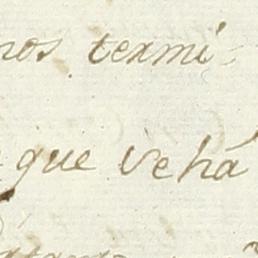 nos termi-
que vehá